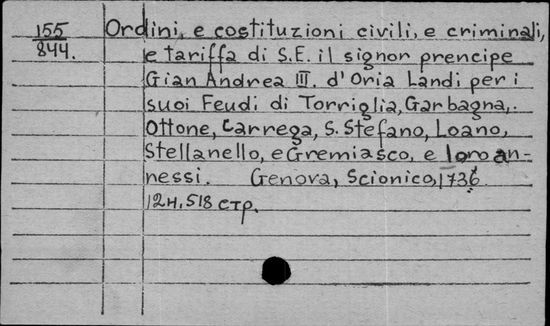 155 Ordini, e costituzioni civili, e criminali,
844. e tariffa di S.E. il signor prencipe
Gian Andrea III. d'Oria Landi per i
suoi Feudi di Torriglia, Garbagna,.
Ottone, Carrega, S. Stefano, Loano,
Stellanello, e Gremiasco, e loro an-
nessi. Genova, Scionico, 1736.
12н, 518 стр.